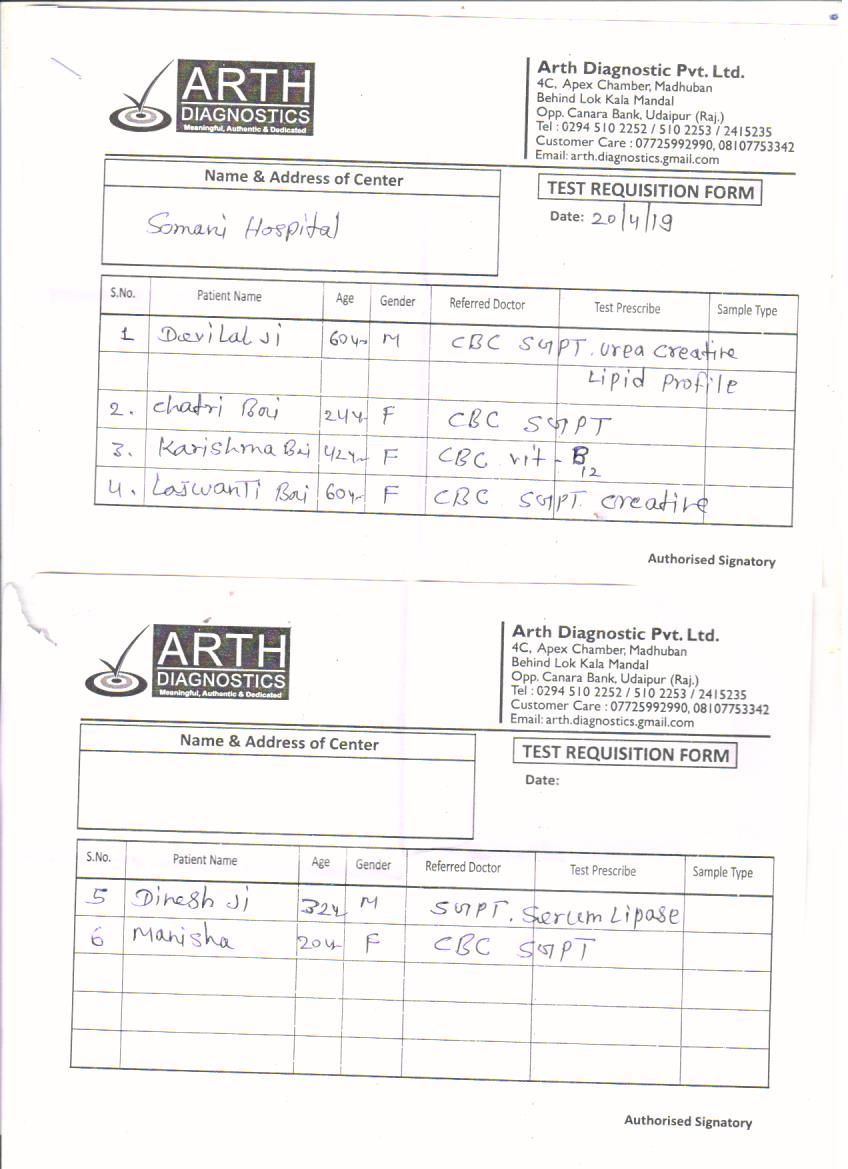 ARTH
DIAGNOSTICS
Meaningful, Authentic & Dedicated
Arth Diagnostic Pvt. Ltd.
4C, Apex Chamber, Madhuban
Behind Lok Kala Mandal
Opp. Canara Bank, Udaipur (Raj.)
Tel : 0294 510 2252 / 510 2253 / 2415235
Customer Care : 07725992990, 08107753342
Email: arth.diagnostics.gmail.com
Name & Address of Center
TEST REQUISITION FORM
Somani Hospital
Date: 20/4/19
S.No. Patient Name Age Gender Referred Doctor Test Prescribe Sample Type
1 Devilal Ji 60yr M CBC SGPT. Urea Creatine
Lipid Profile
2. Chatri Bai 24yr F CBC SGPT
3. Karishma Bai 42yr F CBC vit - B12
4. Laswanti Bai 60yr F CBC SGPT. Creatine
Authorised Signatory
ARTH
DIAGNOSTICS
Meaningful, Authentic & Dedicated
Arth Diagnostic Pvt. Ltd.
4C, Apex Chamber, Madhuban
Behind Lok Kala Mandal
Opp. Canara Bank, Udaipur (Raj.)
Tel : 0294 510 2252 / 510 2253 / 2415235
Customer Care : 07725992990, 08107753342
Email: arth.diagnostics.gmail.com
Name & Address of Center
TEST REQUISITION FORM
Date:
S.No. Patient Name Age Gender Referred Doctor Test Prescribe Sample Type
5 Dinesh Ji 32yr M SGPT. Serum Lipase
6 Manisha 20yr F CBC SGPT
Authorised Signatory